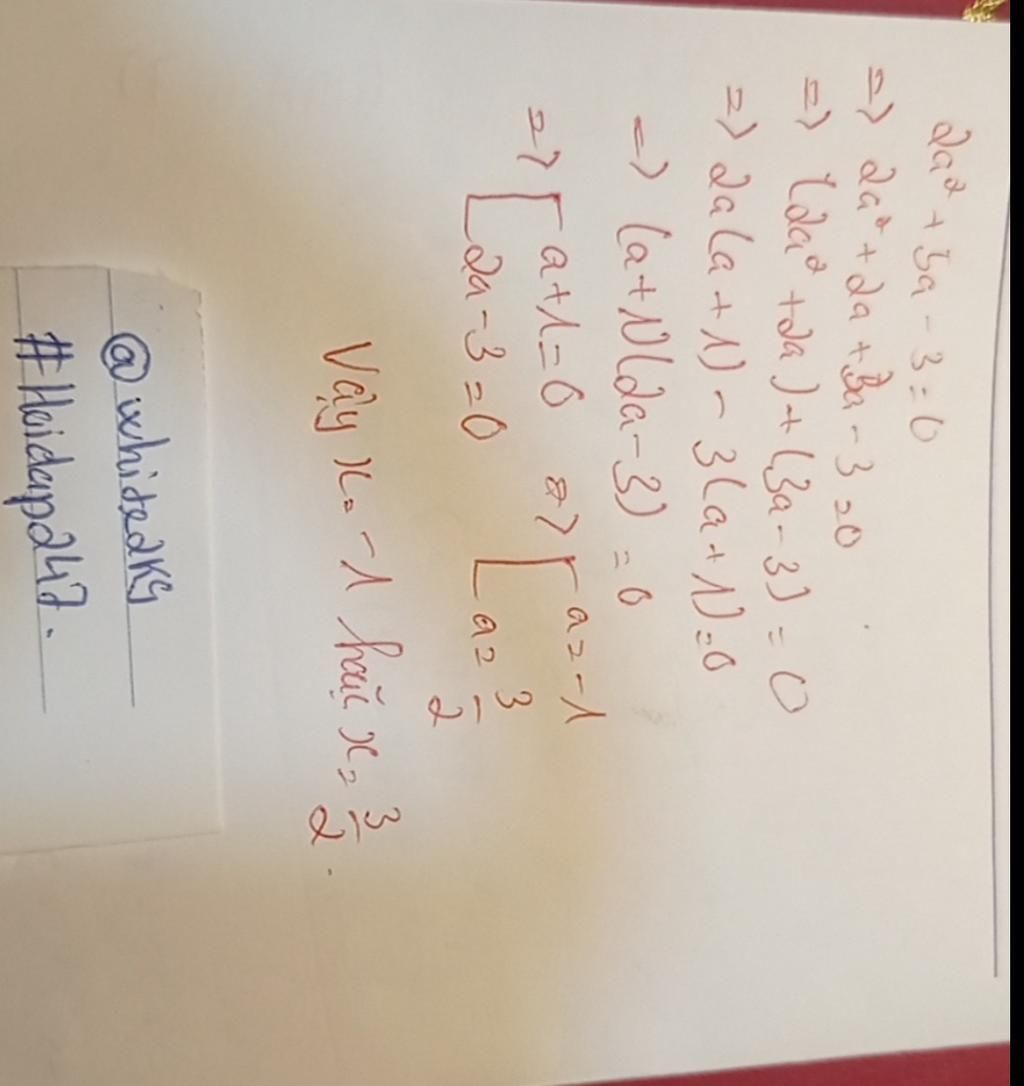 2a² + 5a - 3 = 0
=> 2a² + 2a + 3a - 3 = 0
=> (2a² + 2a) + (3a - 3) = 0
=> 2a(a + 1) - 3(a + 1) = 0
=> (a + 1)(2a - 3) = 0
=> [ a + 1 = 0 => [ a = -1
2a - 3 = 0 a = 3/2
Vậy x = -1 hoặc x = 3/2.
@whitedks
#Hoidap247.